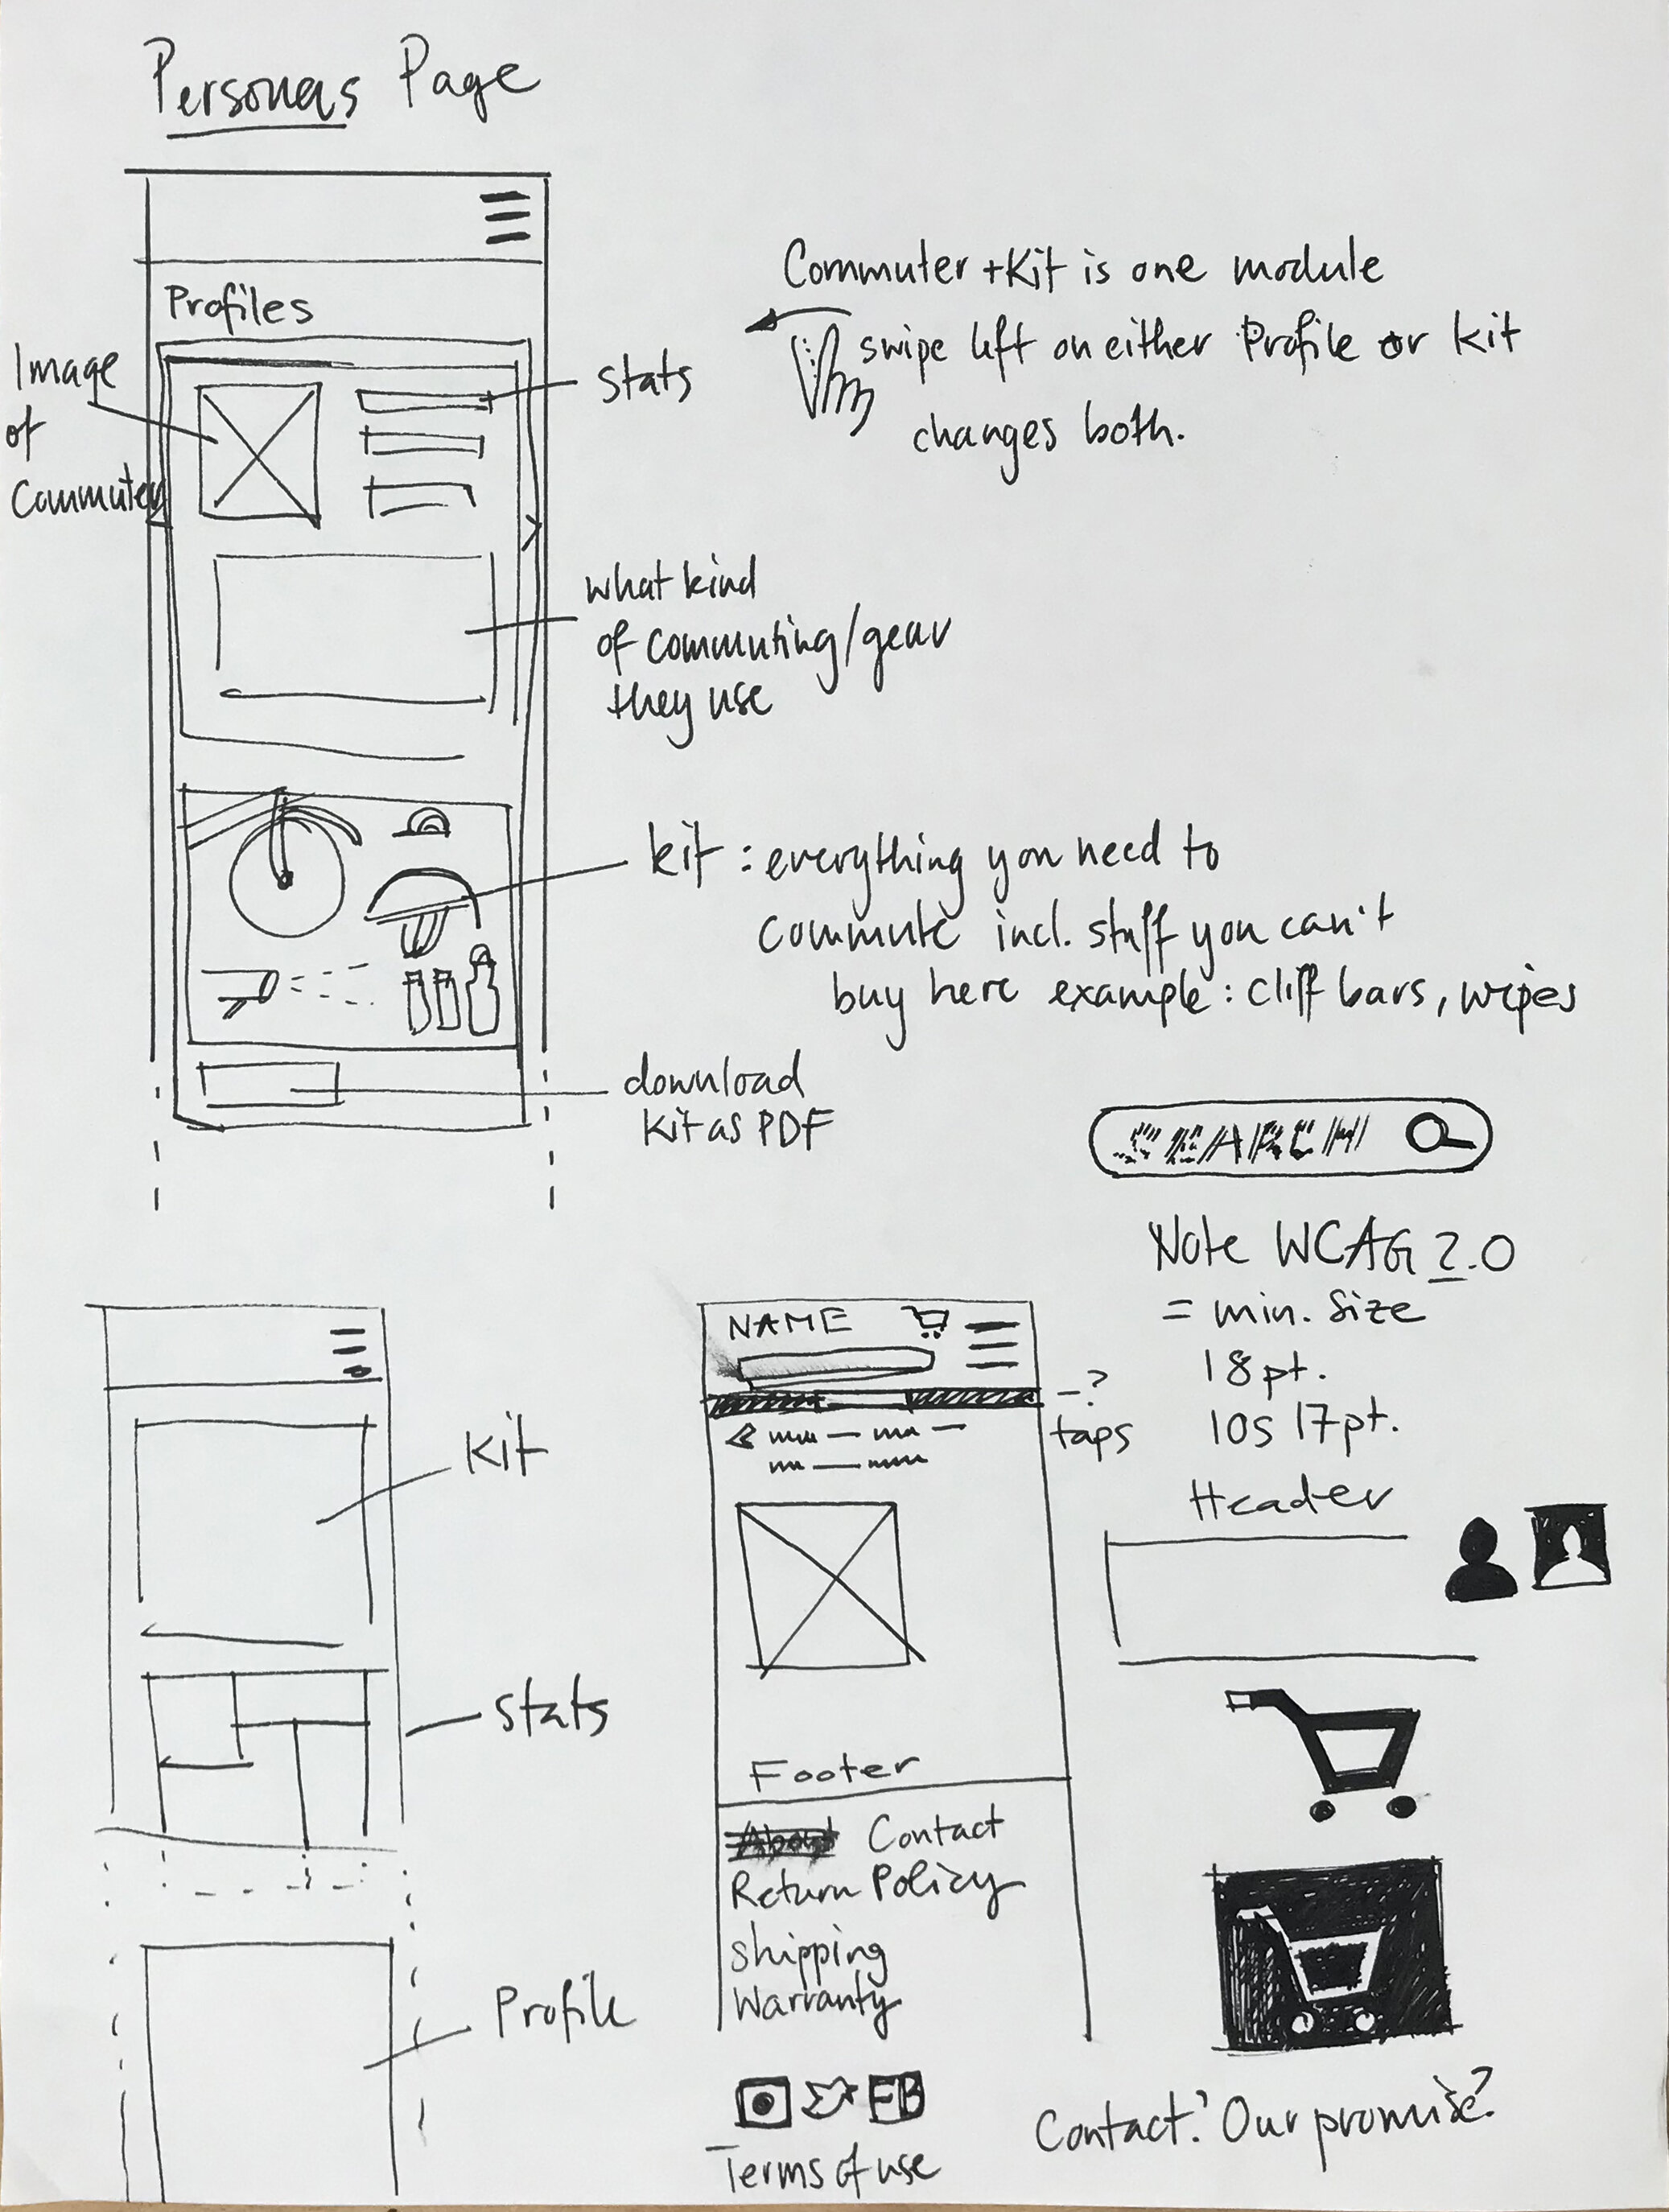 Personas Page
Profiles
Image
of
Commuter
stats
Commuter + Kit is one module
swipe left on either Profile or kit
changes both.
what kind
of commuting/gear
they use
kit : everything you need to
commute incl. stuff you can't
buy here example : cliff bars, wipes
download
kit as PDF
SEARCH
Note WCAG 2.0
= min. Size
18 pt.
IOS 17 pt.
Header
Kit
Stats
Profile
NAME
—?
taps
Footer
About Contact
Return Policy
shipping
Warranty
FB
Terms of use
Contact? Our promise?